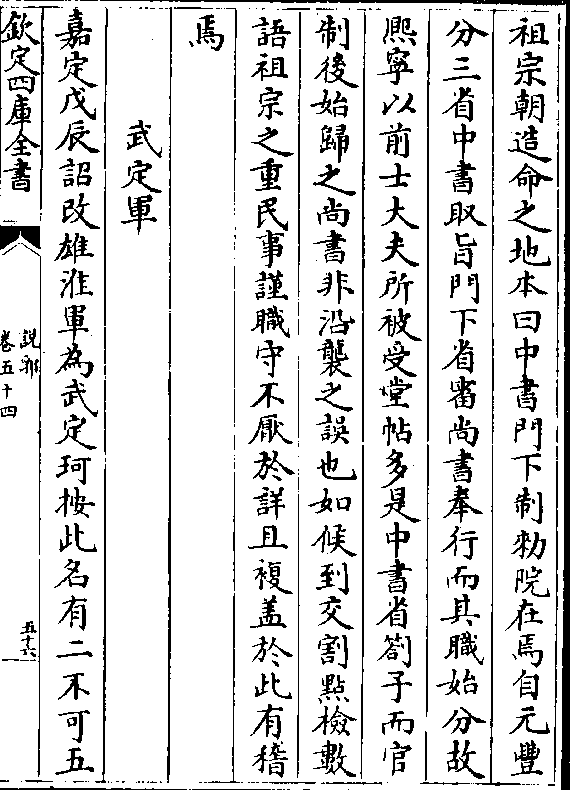 祖宗朝造命之地本曰中書門下制勑院在焉自元豐
分三省中書取旨門下省審尚書奉行而其職始分故
熈寧以前士大夫所被受堂帖多是中書省劄子而官
制後始歸之尚書非沿襲之誤也如候到交割㸃檢數
語祖宗之重民事謹職守不厭於詳且複盖於此有稽
焉
武定軍
嘉定戊辰詔改雄淮軍為武定珂按此名有二不可五
欽定四庫全書
說郛
卷五十四
五十六